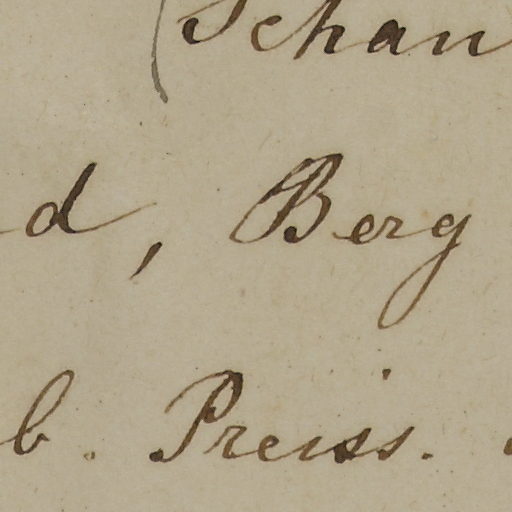 (Schau
d, Berg
b. Preiss.